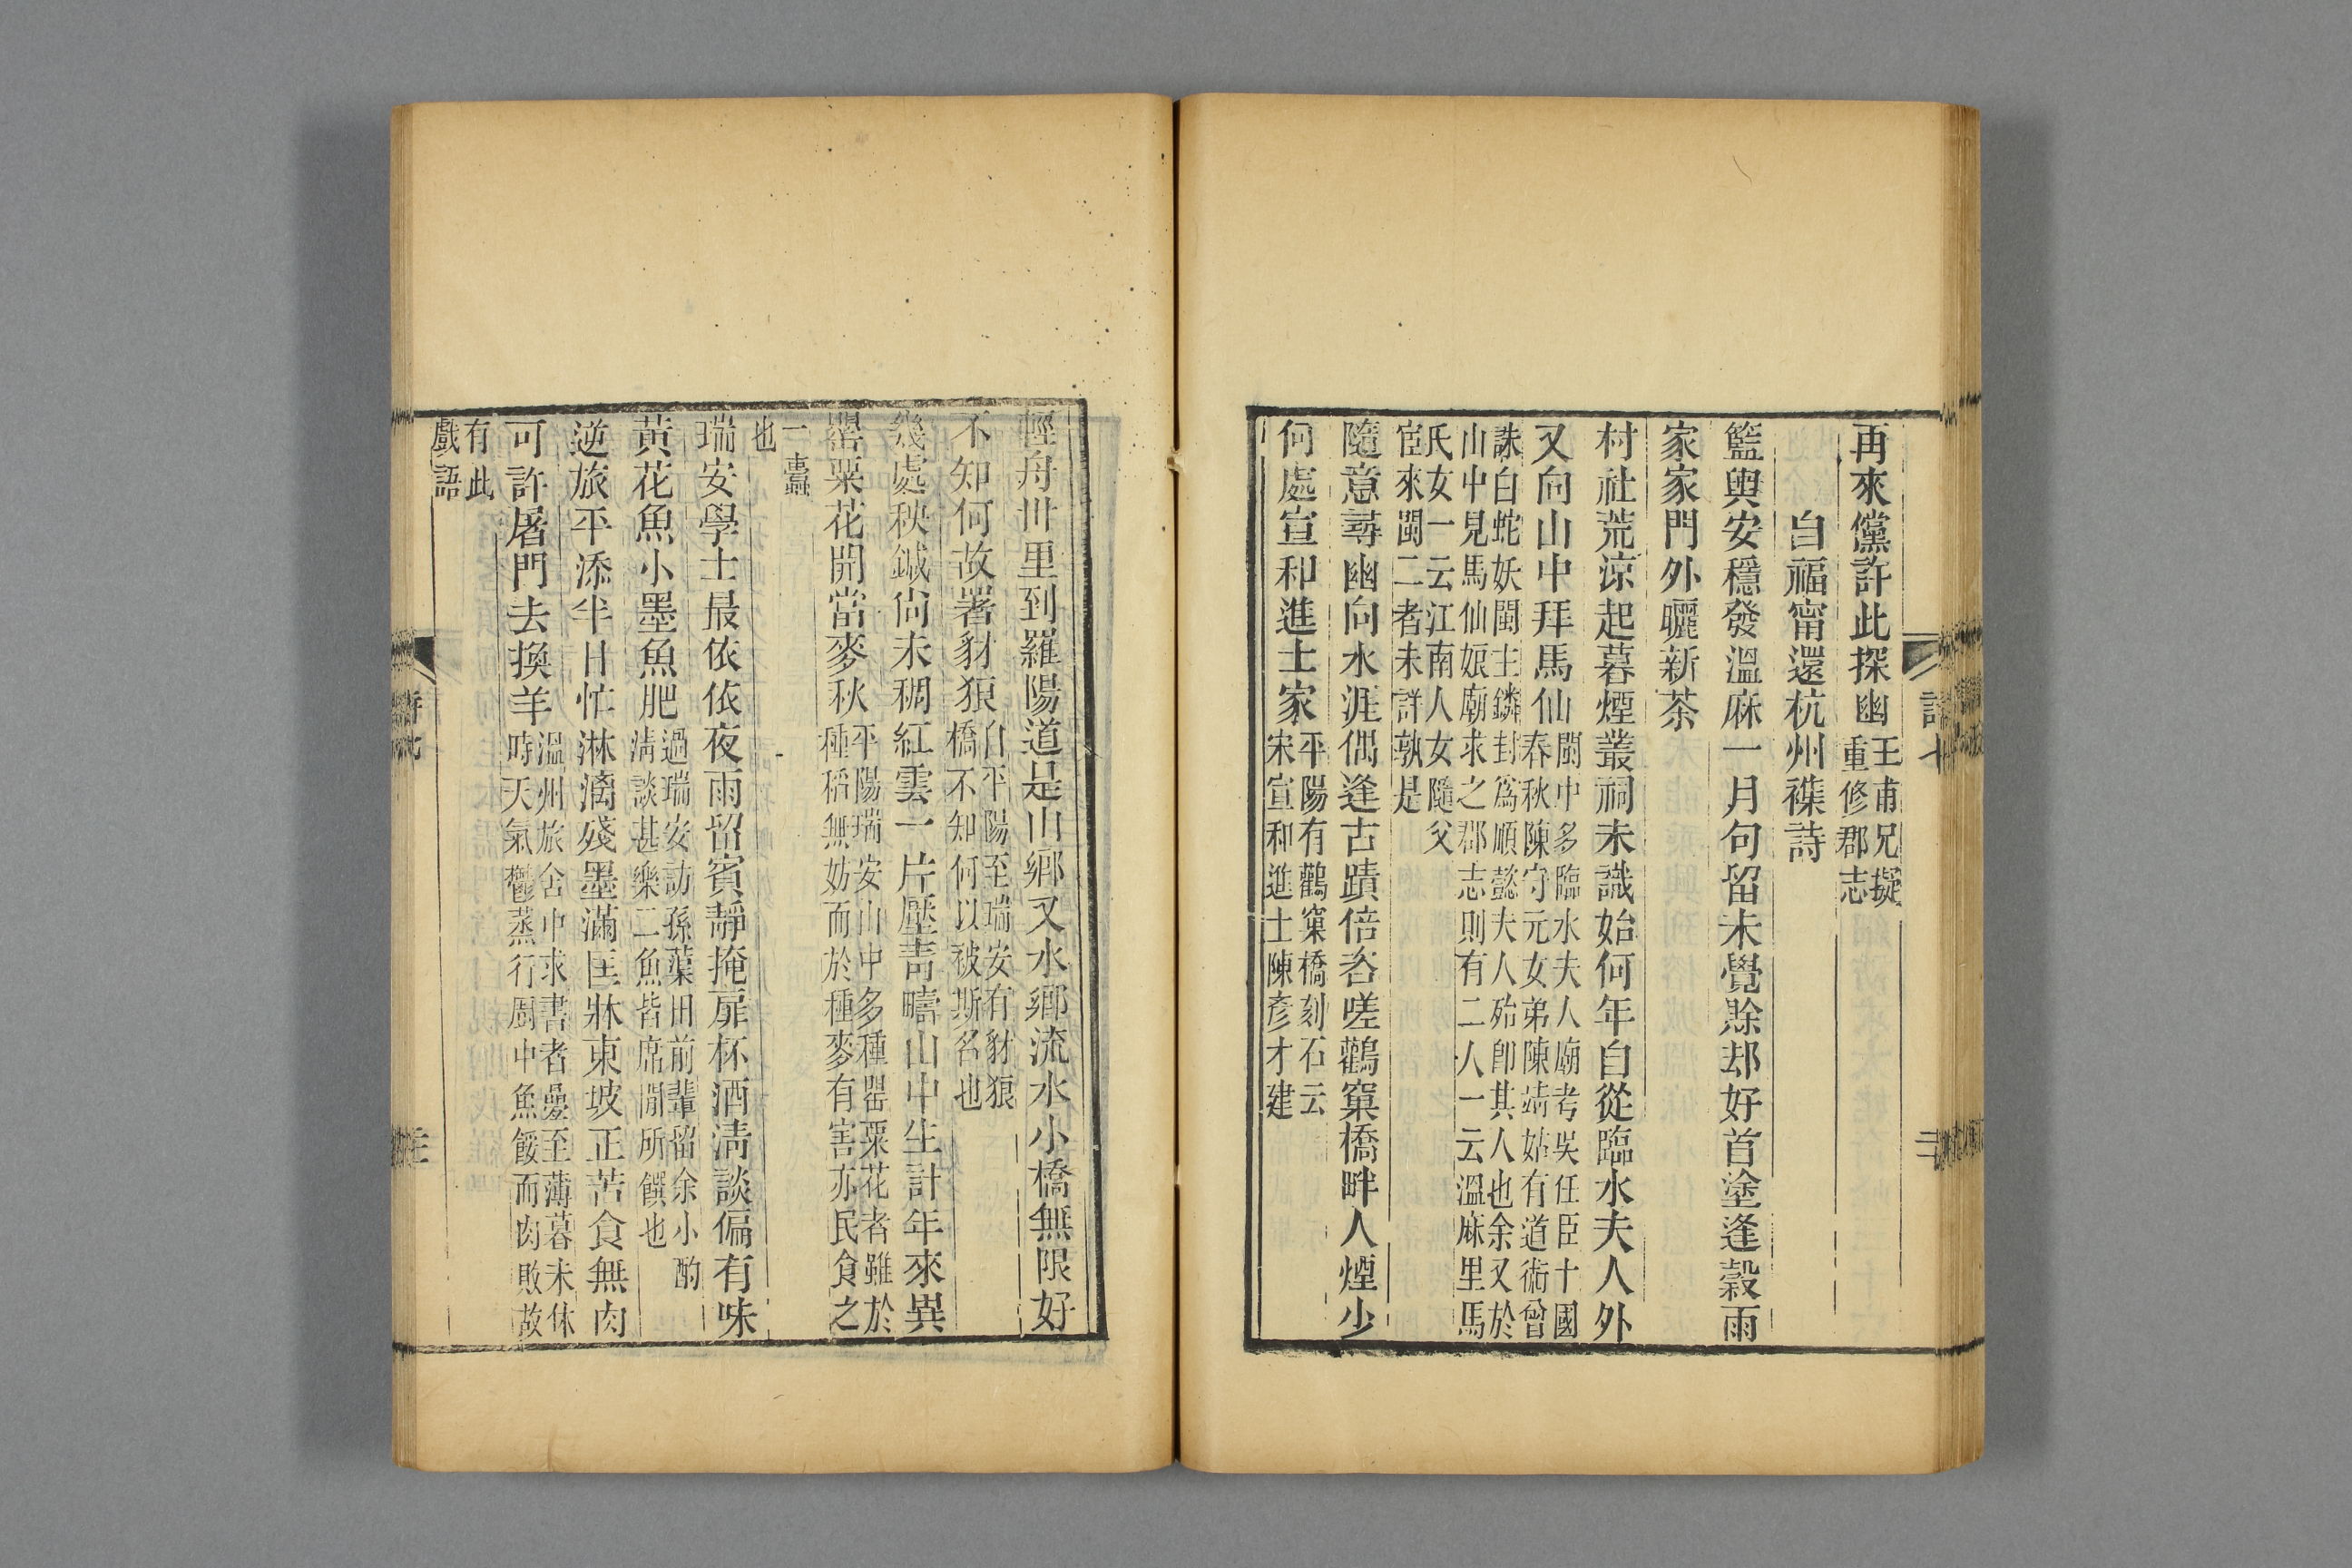 再來儻許此探幽王甫兄擬
重修郡志
自福甯還杭州襍詩
籃輿安穩發溫麻一月句留未覺賒却好首塗逢穀雨
家家門外曬新茶
村社荒涼起暮煙叢祠未識始何年自從臨水夫人外
又向山中拜馬仙閩中多臨水夫人廟考吳任臣十國
春秋陳守元女弟陳靖姑有道術曾
誅白蛇妖閩主鏻封爲順懿夫人殆卽其人也余又於
山中見馬仙娘廟求之郡志則有二人一云溫麻里馬
氏女一云江南人女隨父
宦來閩二者未詳孰是
隨意尋幽向水涯偶逢古蹟倍咨嗟鸛窠橋畔人煙少
何處宣和進士家平陽有鸛窠橋刻石云
宋宣和進士陳彥才建
詩七
輕舟卅里到羅陽道是山鄉又水鄉流水小橋無限好
不知何故署豺狼自平陽至瑞安有豺狼
橋不知何以被斯名也
幾處秧鍼尙未稠紅雲一片壓靑疇山中生計年來異
罌粟花開當麥秋平陽瑞安山中多種罌粟花者雖於
種稻無妨而於種麥有害亦民食之
一蠹
也
瑞安學士最依依夜雨留賓靜掩扉杯酒淸談偏有味
黃花魚小墨魚肥過瑞安訪孫蕖田前輩留余小酌
淸談甚樂二魚皆席閒所饌也
逆旅平添半日忙淋漓殘墨滿匡牀東坡正苦食無肉
可許屠門去換羊溫州旅舍中求書者曡至薄暮未休
時天氣鬱蒸行廚中魚餒而肉敗故
有此
戲語
詩七